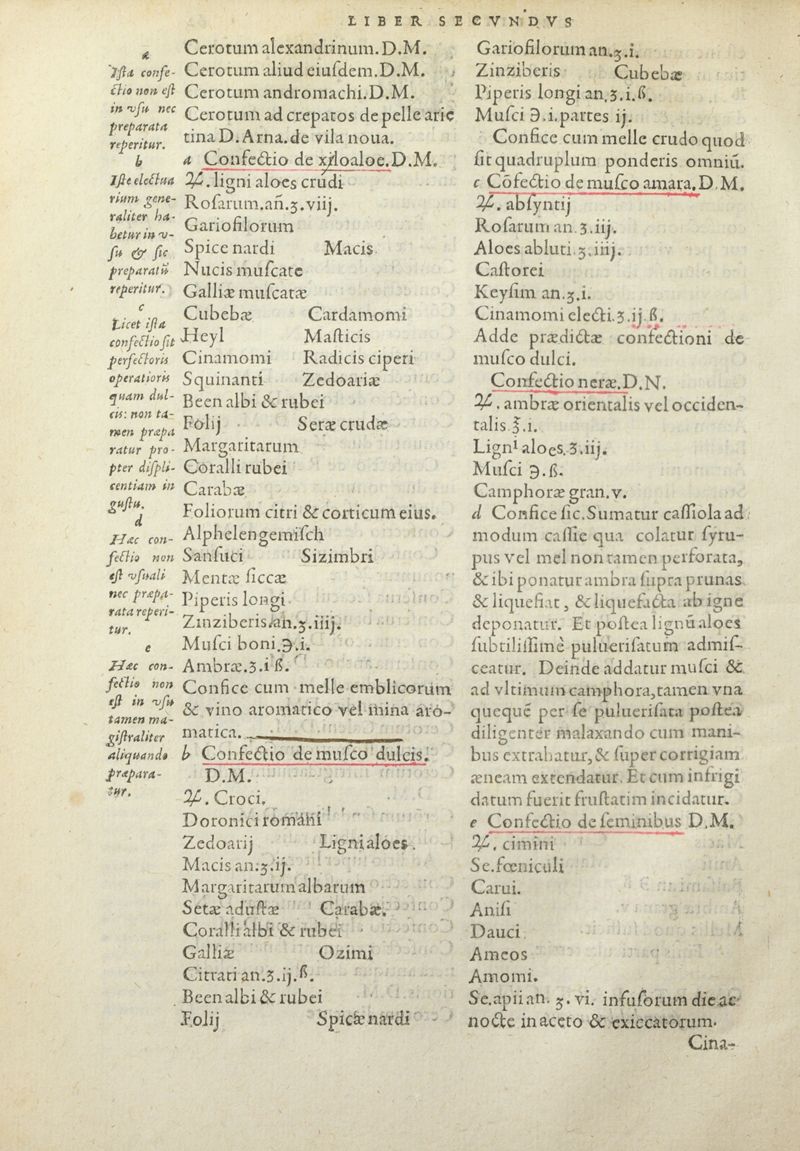 LIBER SECVNDVS
a
Ista confe-
ctio non est
in vsu nec
preparata
reperitur.
b
Iste electua
rium gene-
raliter ha-
betur in v-
su & sic
preparatũ
reperitur.
c
Licet ista
confectio sit
perfectioris
operationis
quam dul-
cis: non ta-
men præpa
ratur pro-
pter displi-
centiam in
gustu.
d
Hæc con-
fectio non
est vsuali
nec præpa-
rata reperi-
tur.
e
Hæc con-
fectio non
est in vsu
tamen ma-
gistraliter
aliquando
præpara-
tur.
Cerotum alexandrinum.D.M.
Cerotum aliud eiusdem.D.M.
Cerotum andromachi.D.M.
Cerotum ad crepatos de pelle arie
tina D.Arna.de vila noua.
a Confectio de xyloaloe.D.M.
℞.ligni aloes crudi
Rosarum.añ.ʒ.viij.
Gariofilorum
Spice nardi Macis
Nucis muscate
Galliæ muscatæ
Cubebæ Cardamomi
Heyl Masticis
Cinamomi Radicis ciperi
Squinanti Zedoariæ
Been albi & rubei
Folij Seræ crudæ
Margaritarum
Coralli rubei
Carabæ
Foliorum citri & corticum eius.
Alphelengemisch
Sansuci Sizimbri
Mentæ siccæ
Piperis longi
Zinziberis.añ.ʒ.iiij.
Musci boni.℈.i.
Ambræ.ʒ.i ß.
Confice cum melle emblicorum
& vino aromatico vel mina aro-
matica.
b Confectio de musco dulcis.
D.M.
℞. Croci.
Doronici romani
Zedoarij Ligni aloes.
Macis an.ʒ.ij.
Margaritarum albarum
Setæ adustæ Carabæ.
Coralli albi & rubei
Galliæ Ozimi
Citrari an.ʒ.ij.ß.
Been albi & rubei
Folij Spicæ nardi
Gariofilorum an.ʒ.i.
Zinziberis Cubebæ
Piperis longi an.ʒ.i.ß.
Musci ℈.i.partes ij.
Confice cum melle crudo quod
sit quadruplum ponderis omniũ.
c Cõfectio de musco amara.D.M.
℞. absyntij
Rosarum an.ʒ.iij.
Aloes abluti.ʒ.iiij.
Castorei
Keysim an.ʒ.i.
Cinamomi electi.ʒ.ij.ß.
Adde prædictæ confectioni de
musco dulci.
Confectio neræ.D.N.
℞. ambræ orientalis vel occiden-
talis ℥.i.
Ligni aloes.ʒ.iij.
Musci ℈.ß.
Camphoræ gran.v.
d Confice sic.Sumatur cassiola ad
modum cassie qua colatur syru-
pus vel mel non tamen perforata,
& ibi ponatur ambra supra prunas
& liquefiat, & liquefacta ab igne
deponatur. Et postea lignũ aloes
subtilissimè puluerisatum admis-
ceatur. Deinde addatur musci &
ad vltimum camphora, tamen vna
queque per se puluerisata postea
diligenter malaxando cum mani-
bus extrahatur, & super corrigiam
æneam extendatur. Et cum infrigi
datum fuerit frustatim incidatur.
e Confectio de seminibus D.M.
℞. cimini
Se.fœniculi
Carui.
Anisi
Dauci
Ameos
Amomi.
Se.apii an. ʒ. vi. infusorum die ac
nocte in aceto & exiccatorum.
Cina-